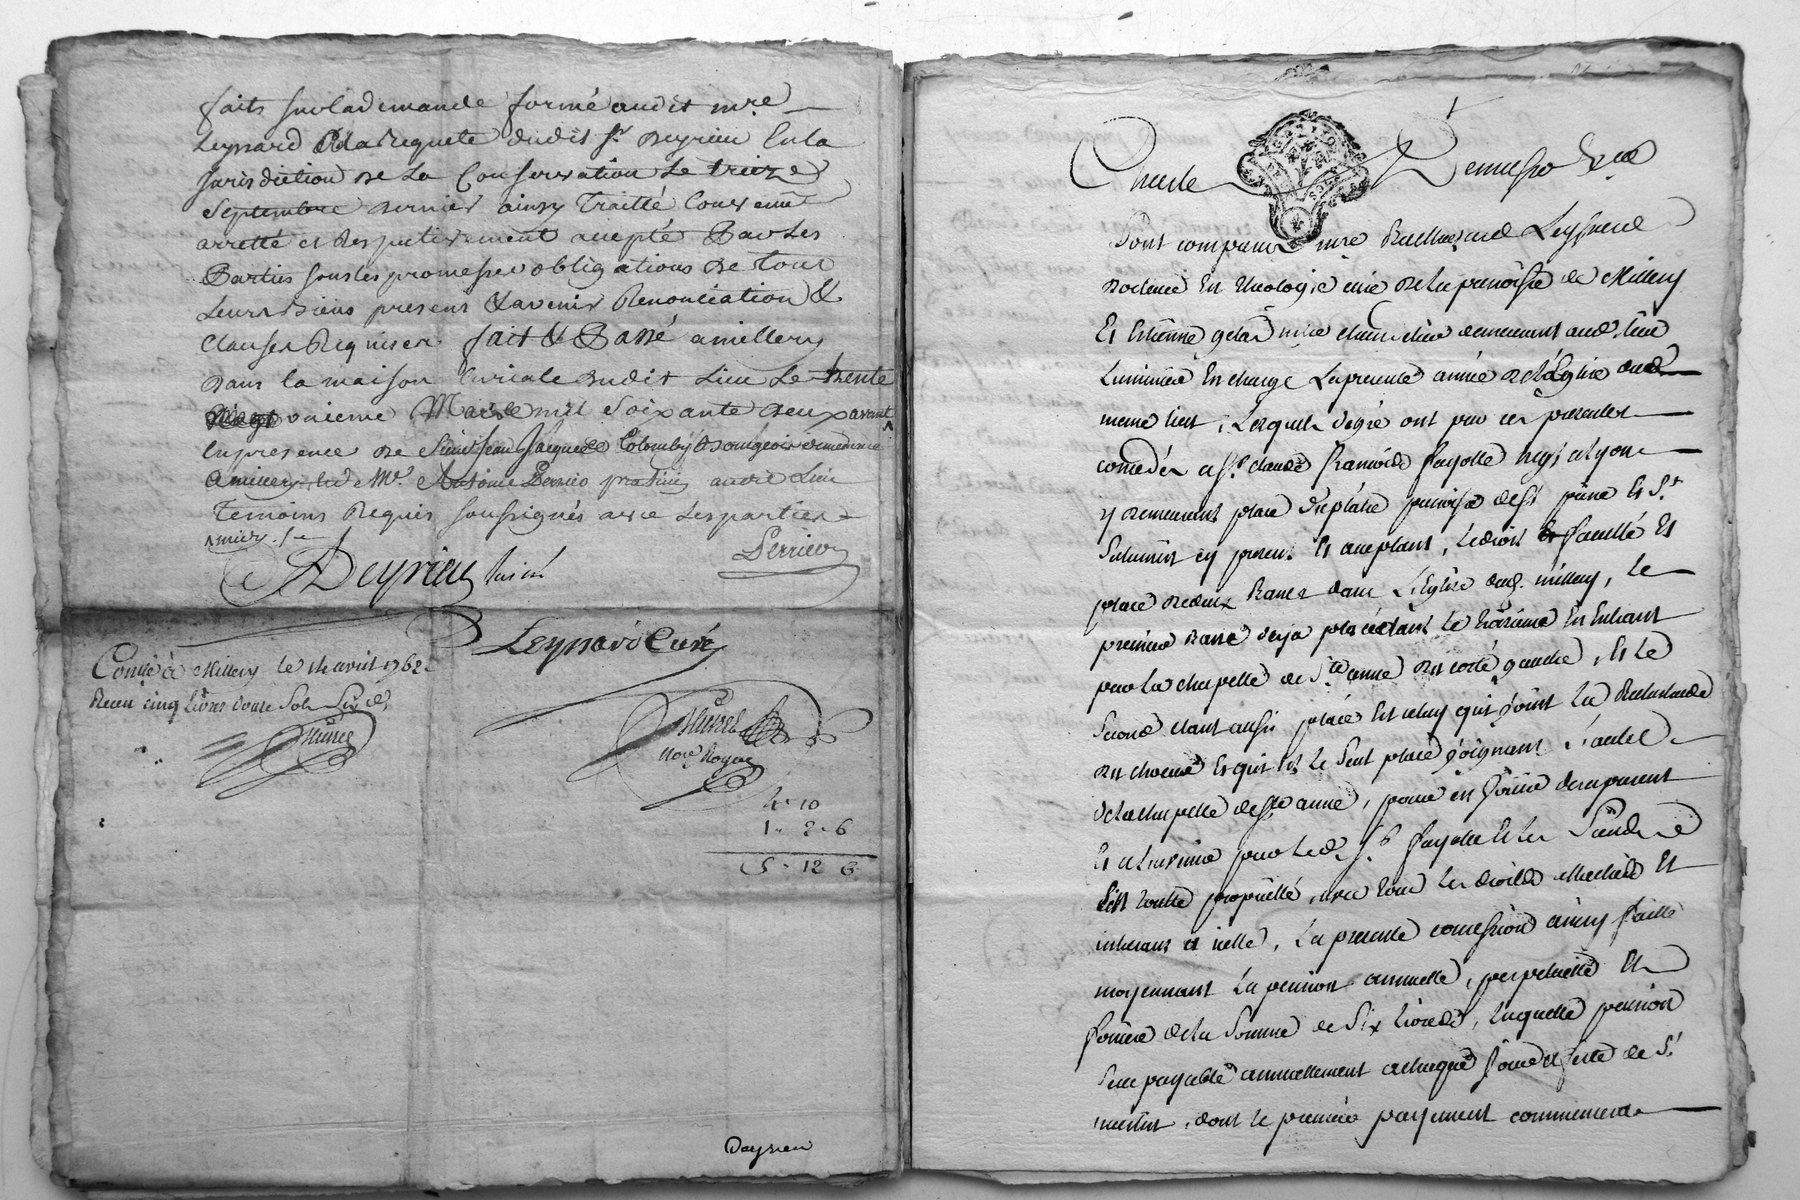 faits sur la demande formé audit mre
Leynard a la requete dudit Sr. Deyrieu En la
Jurisdiction de La Conservation Le treize
Septembre dernier ainsy Traitté Convenu
arretté et Respectivement accepté Par Les
Parties sous les promesses obligations de tous
Leurs Biens presens & avenir Renonciation &
Clauses Requises fait & Passé a millery
dans la maison Curiale dudit Lieu Le trente
unieme Mars mil Soixante deux avant
En presence de Sieur Jean Jacques Colomby Bourgeois demeurant
a millery et de Mr. Antoine Perrico praticien audit Lieu
Temoins Requis soussignés avec Les parties
Deyrieu
Leynard Curé
Nore Royal
Conlé à Millery le 14 avril 1762
Receu cinq Livres douze Sols Six ds
4. 10
1. 2. 6
5. 12 6
Deyrieu
Sont comparus mre Leynard
docteur En theologie curé de la parroisse de Millery
Et Estienne mre demeurant aud. lieu
Luminier En charge La presente année de l'Eglise dud.
meme lieu, Lesquels de gré ont par ces presentes
concedés a Sr. claude françois fayolle negt a Lyon
y demeurant place paroisse de St pierre Et St.
Saturnin cy present Et acceptant, Le droit faculté Et
place de deux Bancs dans L'Eglise dud. millery, le
premier Banc deja placé étant le troisieme En Entrant
par la chapelle de Ste. anne du coté gauche, Et le
Second etant aussi placé Et celuy qui joint La Balustrade
du choeur Et qui Est le Seul placé joignant L'autel
de la chapelle de Ste anne, pour en jouir des a present
Et a l'avenir par Led. Sr. fayolle Et les Siens
En toutte proprietté, avec tous les droits attachés Et
inherans a icelle, La presente concession ainsy faitte
moyennant La pension annuelle, perpetuelle Et
fonciere de la Somme de Six Livres, Laquelle pension
Sera payable annuellement a chaque jour et feste de St.
martin, dont le premier payement commencera